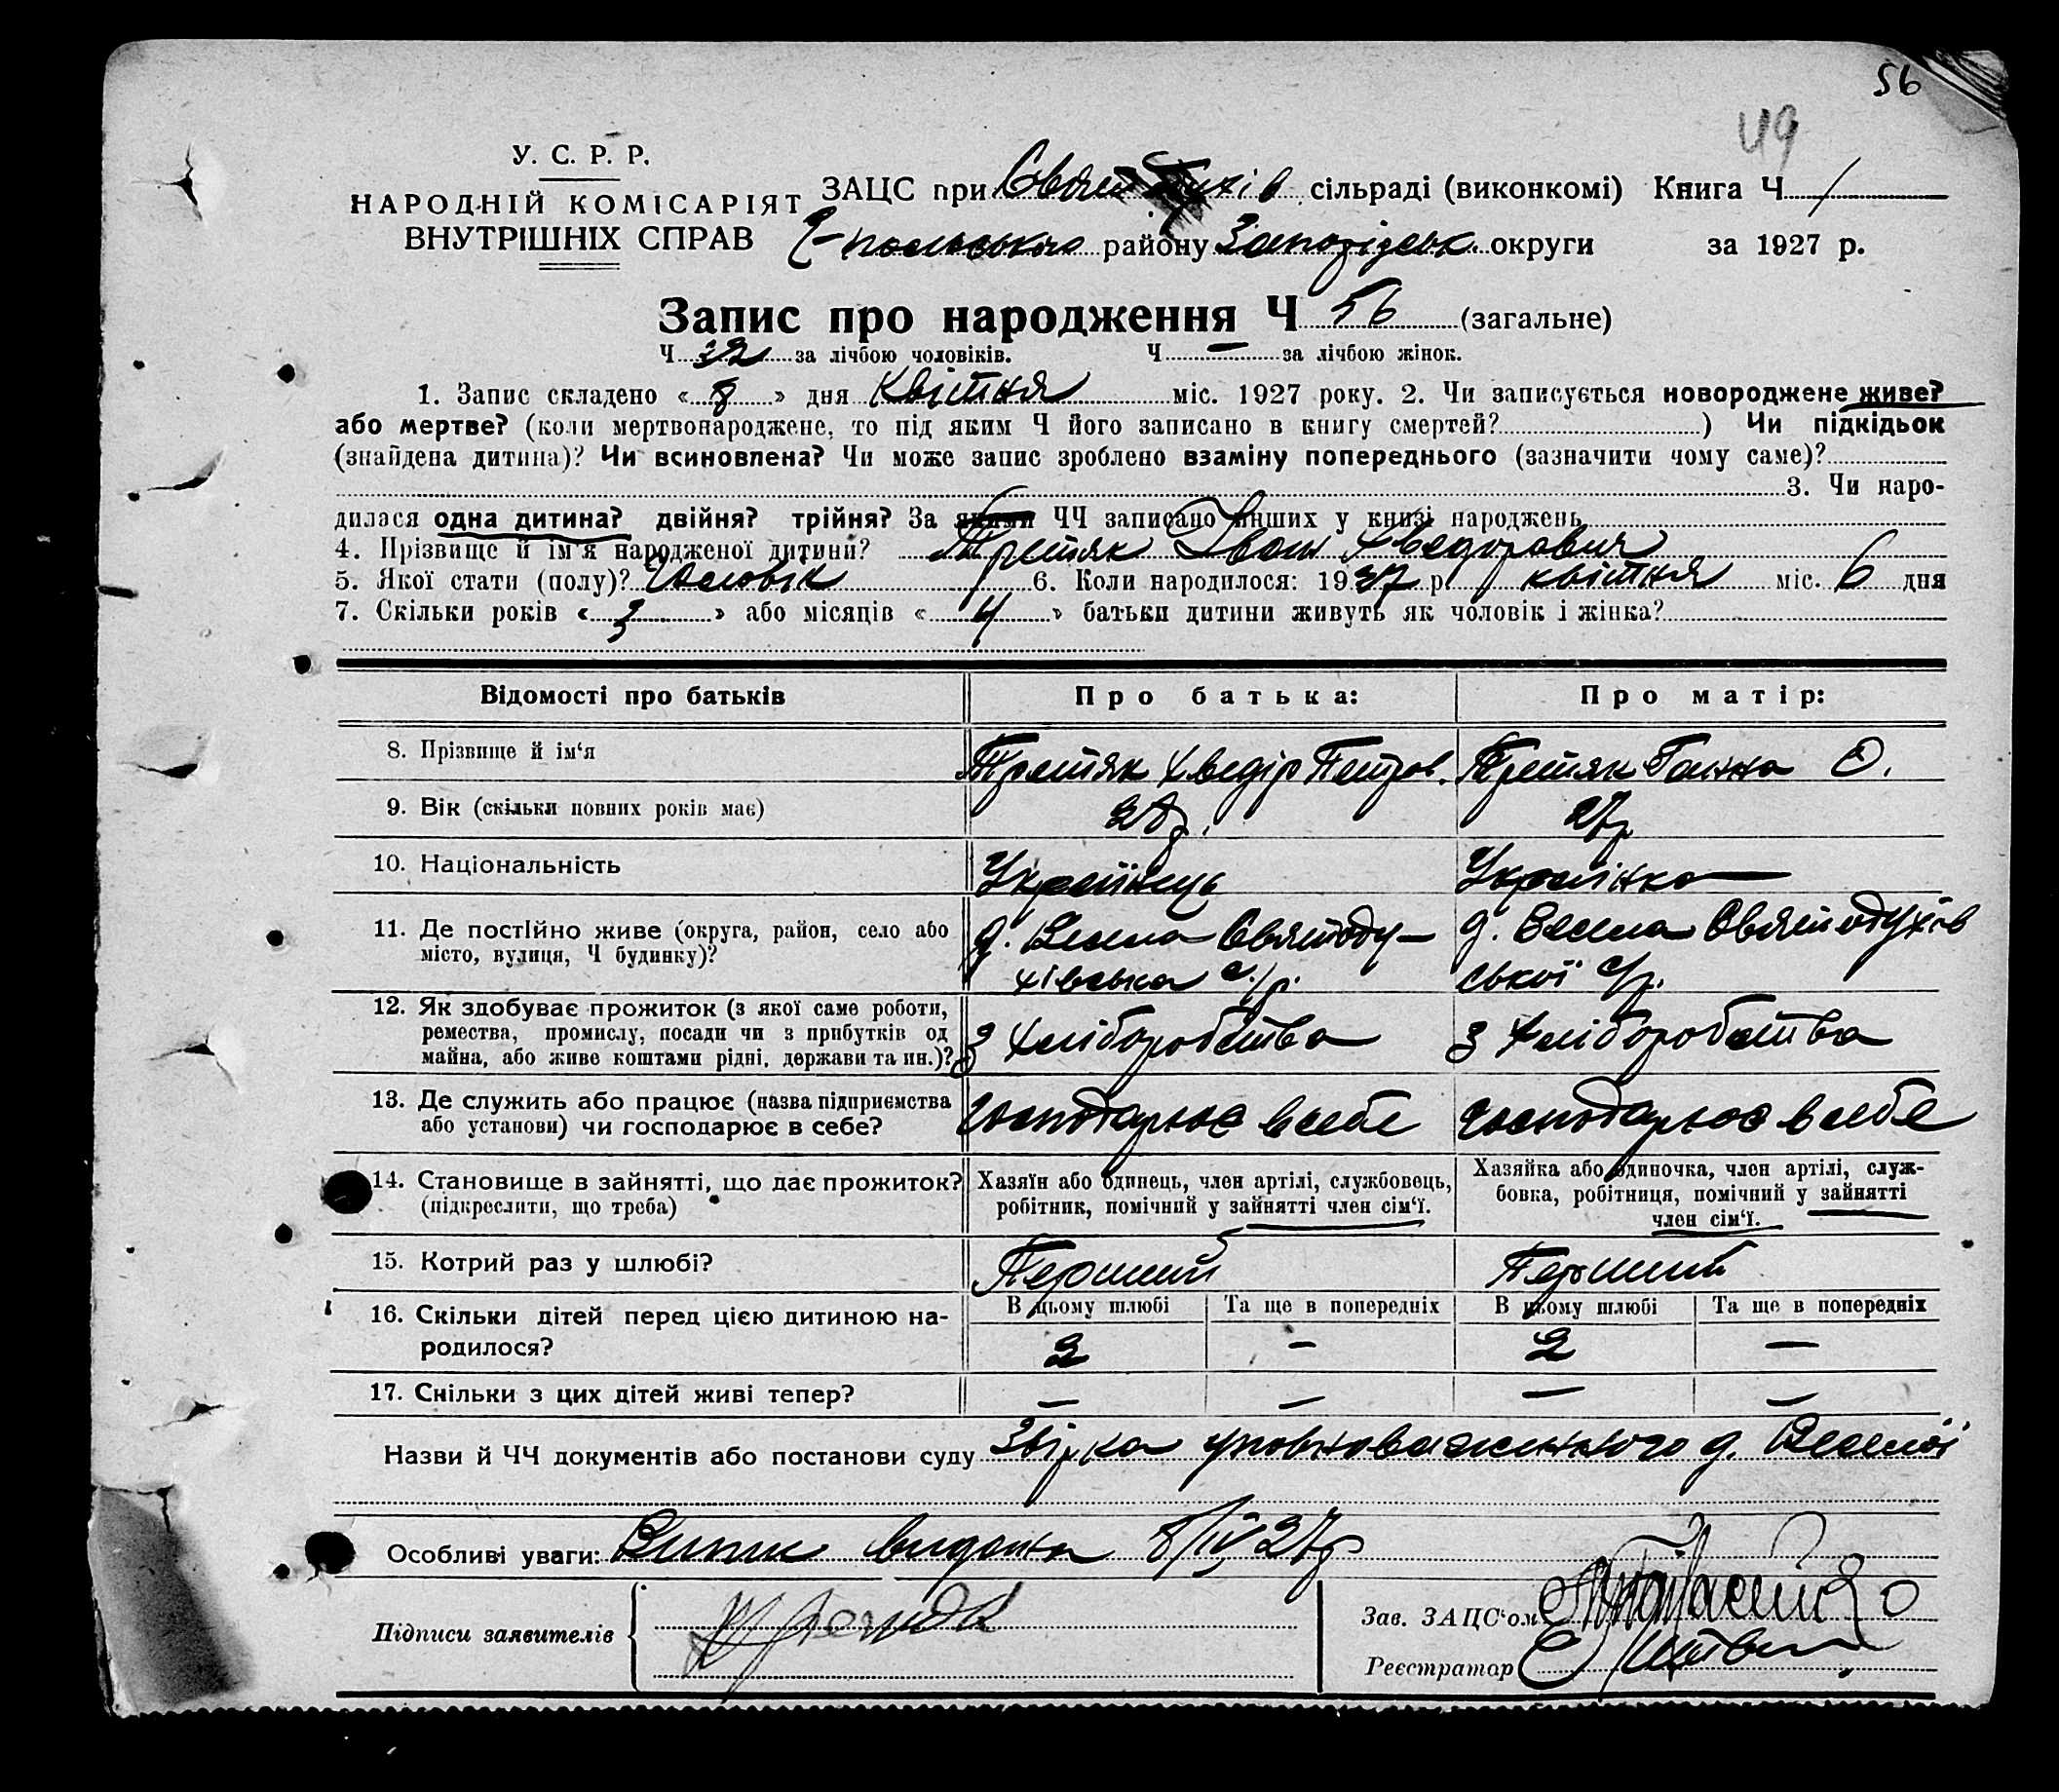 56
49
У. С. Р. Р.
НАРОДНІЙ КОМІСАРІЯТ
ВНУТРІШНІХ СПРАВ
ЗАЦС при сільраді (виконкомі) Книга Ч 1
району Запорізьк. округи за 1927 р.
Запис про народження Ч 56 (загальне)
Ч 32 за лічбою чоловіків. Ч — за лічбою жінок.
1. Запис складено « 8 » дня Квітня міс. 1927 року. 2. Чи записується новороджене живе?
або мертве? (коли мертвонароджене, то під яким Ч його записано в книгу смертей? ) Чи підкідьок
(знайдена дитина)? Чи всиновлена? Чи може запис зроблено взаміну попереднього (зазначити чому саме)?
3. Чи наро-
дилася одна дитина? двійня? трійня? За якими ЧЧ записано инших у книзі народжень
4. Прізвище й ім'я народженої дитини? Третяк Іван Хведорович
5. Якої стати (полу)? Чоловік 6. Коли народилося: 1927 р. квітня міс. 6 дня
7. Скільки років « 3 » або місяців « 4 » батьки дитини живуть як чоловік і жінка?
Відомості про батьків
Про батька:
Про матір:
8. Прізвище й ім'я
Третяк Хведір Петров.
Третяк Ганна О.
9. Вік (скільки повних років має)
28р.
27р
10. Національність
Українець
Українка
11. Де постійно живе (округа, район, село або
місто, вулиця, Ч будинку)?
д. Весела Святоду-
хівська с/р.
д. Весела Святодухів
ської с/р.
12. Як здобуває прожиток (з якої саме роботи,
ремества, промислу, посади чи з прибутків од
майна, або живе коштами рідні, держави та ин.)?
З хліборобства
З хліборобства
13. Де служить або працює (назва підприємства
або установи) чи господарює в себе?
господарює в себе
господарює в себе
14. Становище в зайнятті, що дає прожиток?
(підкреслити, що треба)
Хазяїн або одинець, член артілі, службовець,
робітник, помічний у зайнятті член сім'ї.
Хазяйка або одиночка, член артілі, служ-
бовка, робітниця, помічний у зайнятті
член сім'ї.
15. Котрий раз у шлюбі?
Перший
Перший
16. Скільки дітей перед цією дитиною на-
родилося?
В цьому шлюбі
Та ще в попередніх
В цьому шлюбі
Та ще в попередніх
2
—
2
—
17. Скільки з цих дітей живі тепер?
—
—
—
—
Назви й ЧЧ документів або постанови суду Звірка уповноваженного д. Веселої
Особливі уваги: Випис видана 8/IV 27р
Підписи заявителів Третяк
Зав. ЗАЦС'ом
Реєстратор